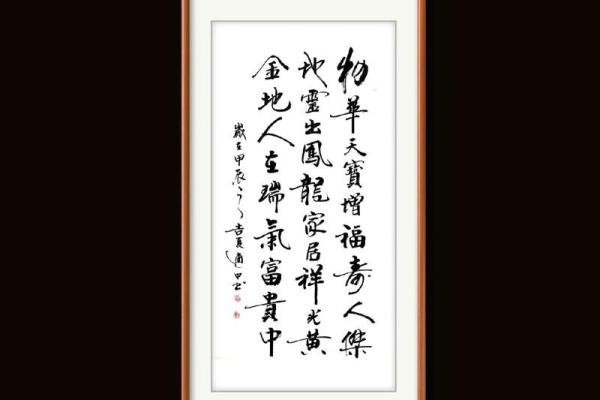 物華天寶增福壽人傑
地靈出鳳龍家居祥光黃
金地人在瑞氣富貴中
歲在甲辰